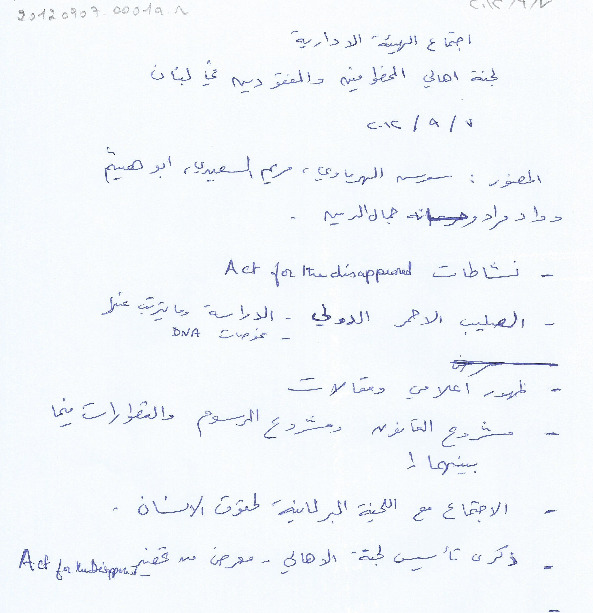 20120907.0001a.r
٢٠١٢/٩/٧
اجتماع الهيئة الادارية
لجنة اهالي المخطوفين والمفقودين في لبنان
٢٠١٢ / ٩ / ٧
الحضور : سوسن الهرباوي، مريم السعيدي، ابو هيثم
وداد مراد و جمال الدين .
- نشاطات Act for the disappeared
- الصليب الاحمر الدولي - الدراسة وما يترتب عنها
- DNA
- ظهور اعلامي ومقالات
- مشروع القانون ومشروع المرسوم والتطورات فيما
بينهما !
- الاجتماع مع اللجنة البرلمانية لحقوق الانسان .
- ذكرى تأسيس لجنة الاهالي - معرض من Act for the Disappeared
-